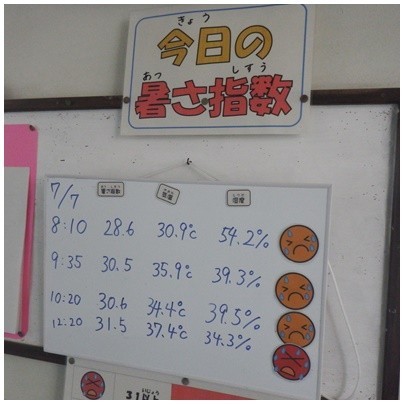 きょう
今日の
あつ しすう
暑さ指数
7/7 暑さ指数 気温 湿度
8:10 28.6 30.9℃ 54.2%
9:35 30.5 35.9℃ 39.3%
10:20 30.6 34.4℃ 39.5%
12:20 31.5 37.4℃ 34.3%
いじょう
31以上